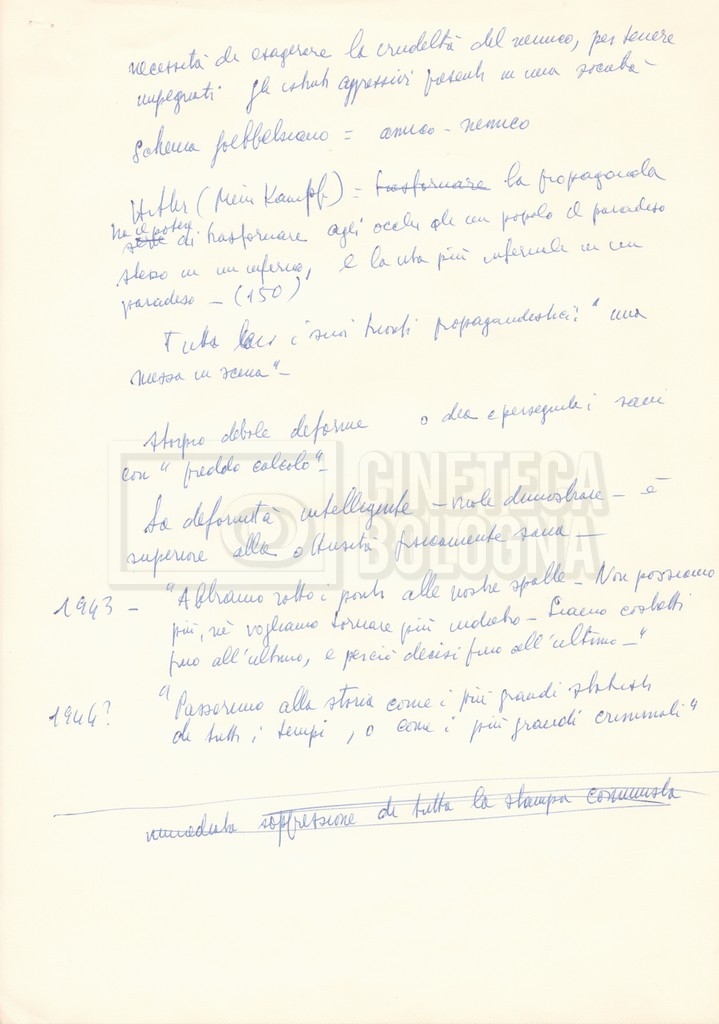 necessità di esagerare la crudeltà del nemico, per tenere
impegnati gli istinti aggressivi presenti in una società -
Schema goebbelsiano = amico - nemico
Hitler (Mein Kampf) = trasformare la propaganda
ha il potere
di trasformare agli occhi di un popolo il paradiso
stesso in un inferno, e la vita più infernale in un
paradiso - (150)
Tutta i suoi trionfi propagandistici: "una
messa in scena" -
storpio debole deforme o dia e perseguita i sani
con "freddo calcolo" -
CINETECA
BOLOGNA
La deformità intelligente - vuole dimostrare - è
superiore alla ottusità fisicamente sana -
1943 - "Abbiamo rotto i ponti alle nostre spalle - Non possiamo
più, nè vogliamo tornare più indietro - Siamo costretti
fino all'ultimo, e perciò decisi fino all'ultimo - "
1944? "Passeremo alla storia come i più grandi statisti
di tutti i tempi, o come i più grandi criminali"
immediata soppressione di tutta la stampa comunista